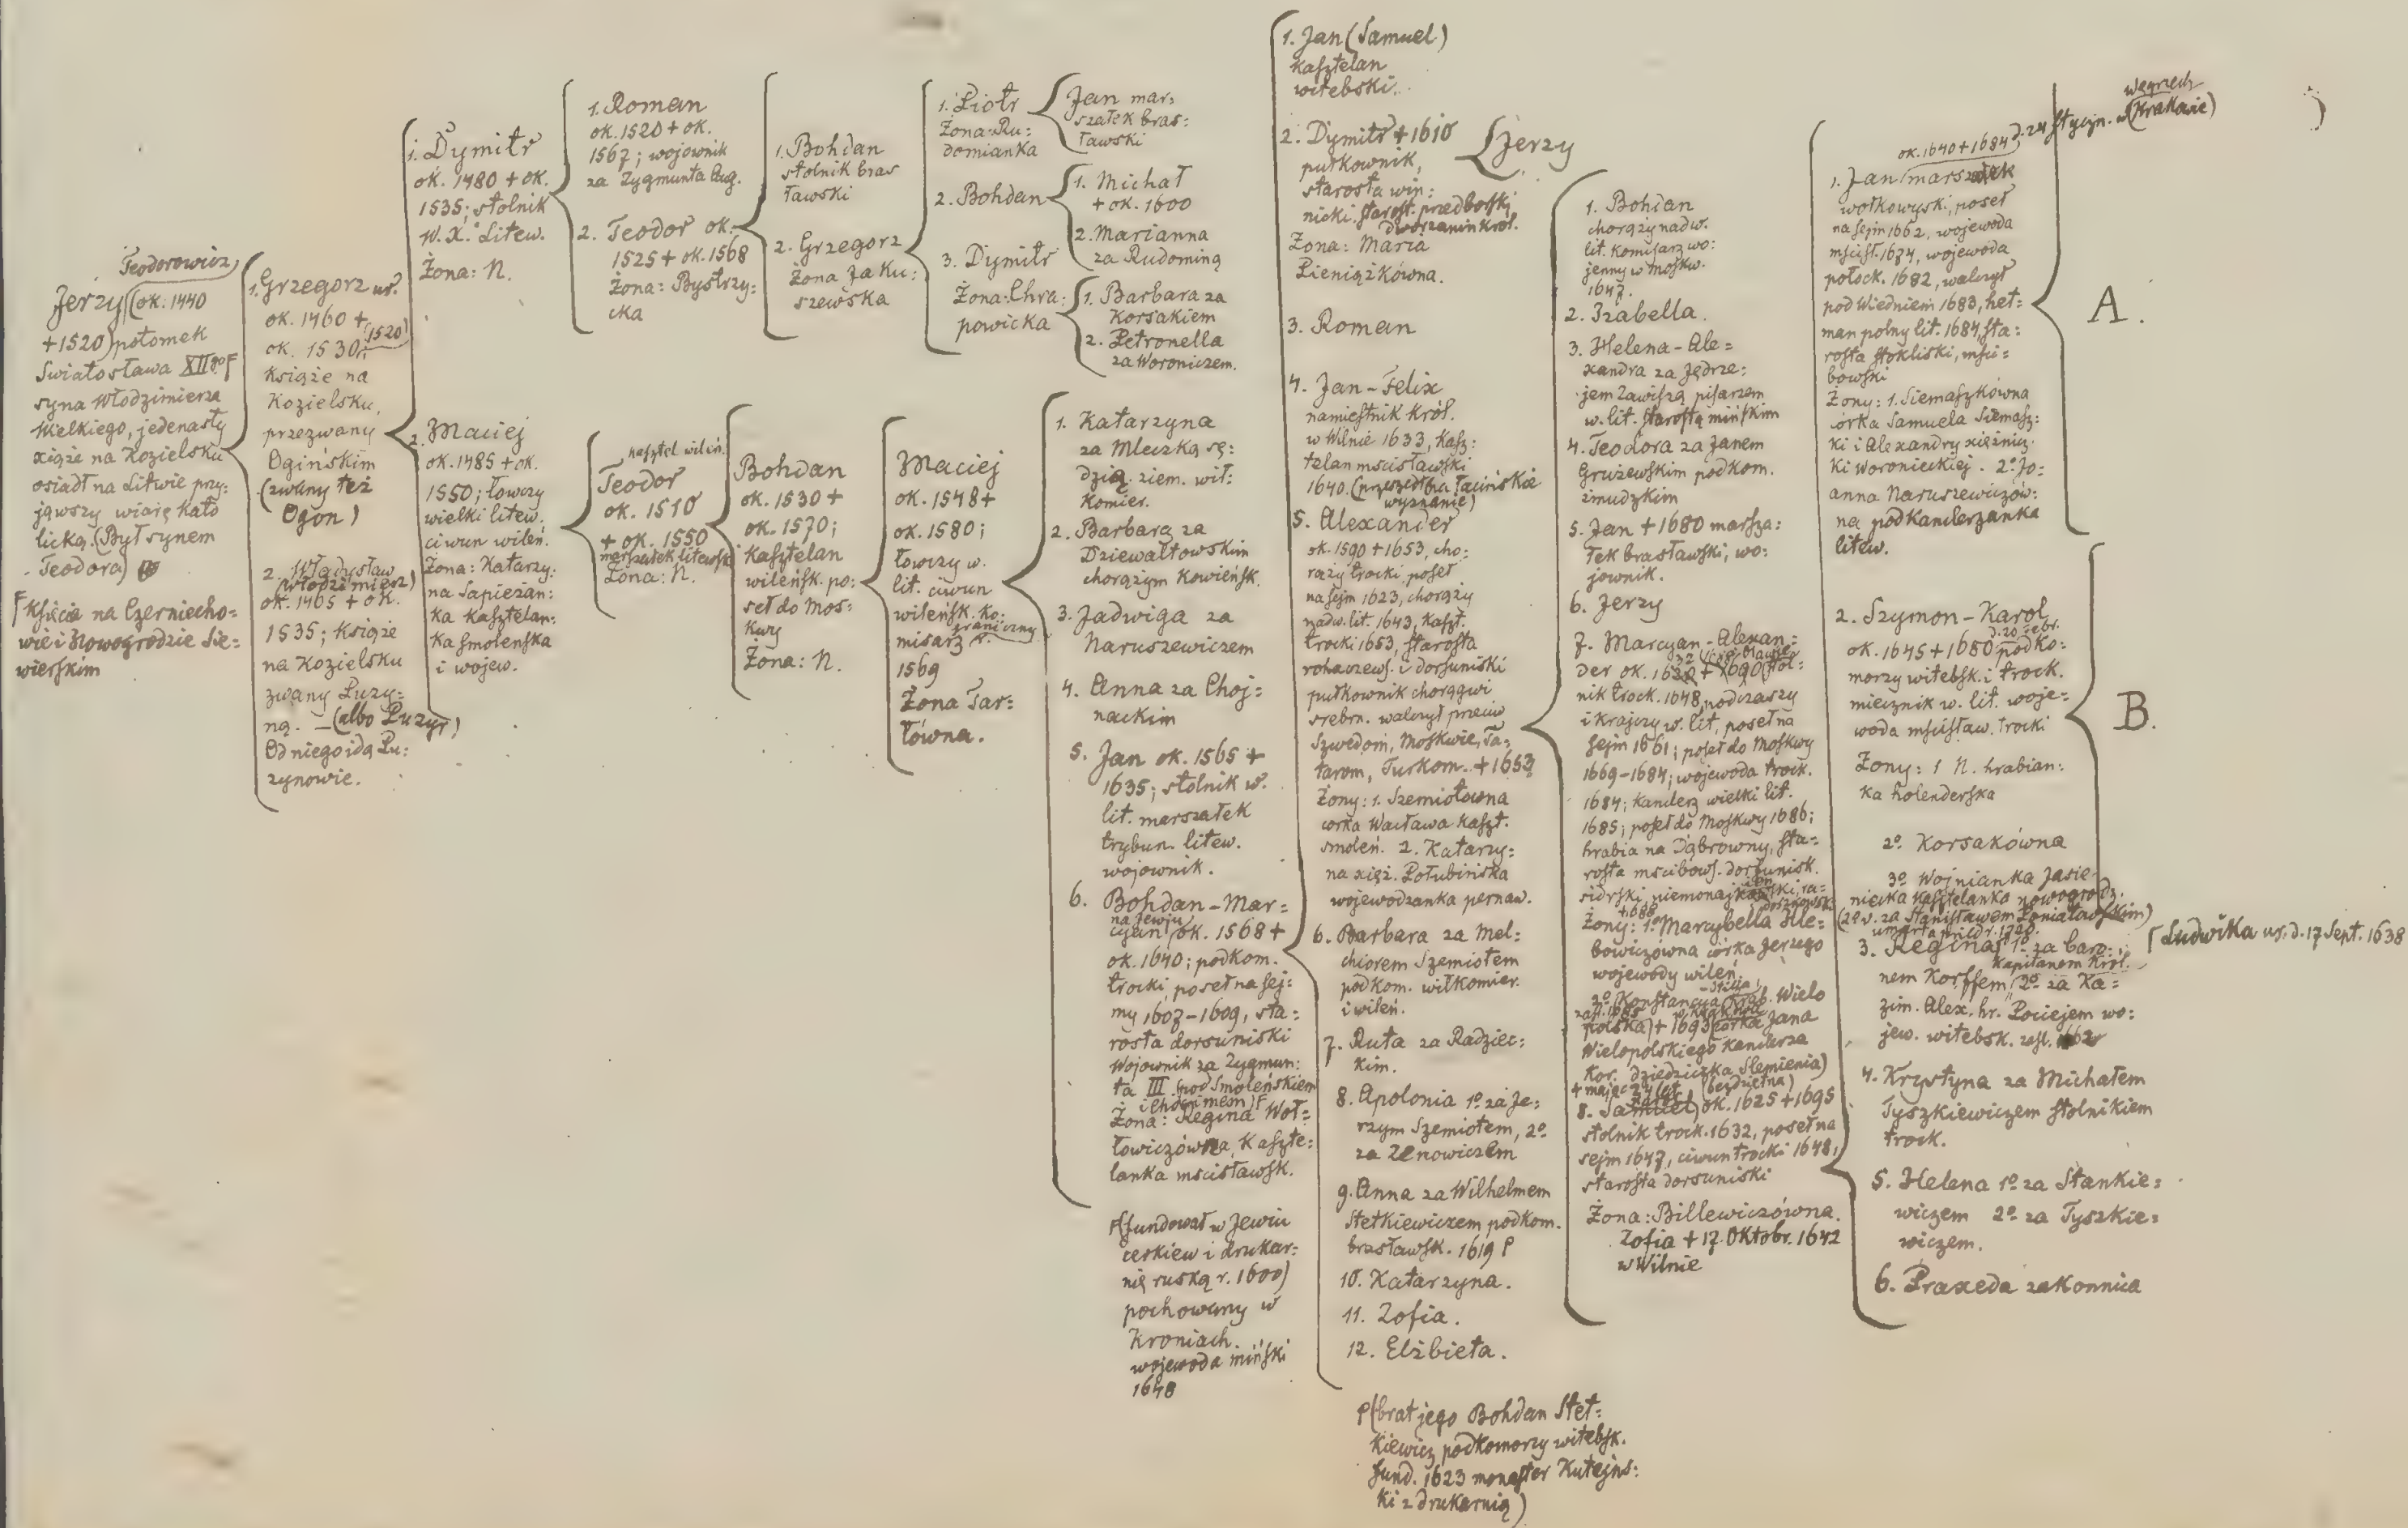 Teodorowicz
Jerzy (ok. 1440
+1520) potomek
Swiatosława XIIgo
syna Włodzimierza
Wielkiego, jedenasty
xiąże na Kozielsku
osiadł na Litwie przy=
jąwszy wiarę kato
licką. (Był synem
Teodora)
Księcia na Czerniecho=
wie i Nowogrodzie Sie=
wierskim
1. Grzegorz ur.
ok. 1460 +
ok. 1530 (1520)
Książe na
Kozielsku,
przezwany
Ogińskim
(zwany też
Ogon)
2. Władysław
(Włodzimierz)
ok. 1465 + ok.
1535; Książe
na Kozielsku
zwany Puzy=
ną. — (albo Puzyr)
Od niego idą Pu:
zynowie.
1. Dymitr
ok. 1480 + ok.
1535; stolnik
W. X. Litew.
Żona: N.
2. Maciej
ok. 1485 + ok.
1550; łowczy
wielki litew.
ciwun wileń.
Żona: Katarzy:
na Sapieżan:
ka Kasztelan:
ka Smoleńska
i wojew.
1. Roman
ok. 1520 + ok.
1567; wojownik
za Zygmunta Aug.
2. Teodor ok.
1525 + ok. 1568
Żona: Bystrzy:
cka
kasztel wileń.
Teodor
ok. 1510
+ ok. 1550
marszałek litewski
Żona: N.
1. Bohdan
stolnik bras
ławski
2. Grzegorz
Żona Jaku:
szewska
Bohdan
ok. 1530 +
ok. 1570;
Kasztelan
wileńsk. po:
seł do Mos:
kwy
Żona: N.
1. Piotr
Żona: Ru:
domianka
2. Bohdan
3. Dymitr
Żona: Chra:
powicka
Maciej
ok. 1548 +
ok. 1580;
łowczy w.
lit. ciwun
wileńsk. Ko:
misarz graniczny r.
1569
Żona Tar:
łówna.
Jan mar:
szałek bras:
ławski
1. Michał
+ ok. 1600
2. Marianna
za Rudominą
1. Barbara za
Korsakiem
2. Petronella
za Woroniczem.
1. Katarzyna
za Mleczką sę:
dzią ziem. wił:
komier.
2. Barbara za
Dziewałtowskim
chorążym Kowieńsk.
3. Jadwiga za
Naruszewiczem
4. Anna za Choj=
nackim
5. Jan ok. 1565 +
1635; stolnik w.
lit. marszałek
trybun. litew.
wojownik.
6. Bohdan-Mar=
na Jewju
cyan ok. 1568 +
ok. 1640; podkom.
trocki, poseł na sej:
my 1607-1609, sta:
rosta dorsuniski
Wojownik za Zygmun:
ta III. (pod Smoleńskiem
i Chocimem)
Żona: Regina Woł=
łowiczówna, Kaszte:
lanka mscisławsk.
(fundował w Jewiu
cerkiew i drukar:
nię ruską r. 1600)
pochowany w
Kroniach.
wojewoda miński
1648
1. Jan (Samuel)
Kasztelan
witebski.
2. Dymitr + 1610
pułkownik,
starosta win:
nicki. starost. przedborski
dworzanin król.
Żona: Maria
Pieniążkówna.
Jerzy
3. Roman
4. Jan-Felix
namiestnik Król.
w Wilnie 1633, Kasz:
telan mscisławski
1640. (przeszedł na łacińskie
wyznanie)
5. Alexander
ok. 1590 + 1653, cho:
rąży trocki, poseł
na sejm 1623, chorąży
nadw. lit. 1643, kaszt.
trocki 1653, starosta
rohaczews. i dorsuniski
pułkownik chorągwi
srebrn. walczył przeciw
Szwedom, Moskwie, Ta:
tarom, Turkom. +1653
Żony: 1. Szemiotówna
córka Wacława kaszt.
smoleń. 2. Katarzy:
na xięż. Połubińska
wojewodzanka pernaw.
6. Barbara za Mel:
chiorem Szemiotem
podkom. wiłkomier.
i wileń.
7. Ruta za Radziec:
kim.
8. Apolonia 1º za Je:
rzym Szemiotem, 2º
za Zenowiczem
9. Anna za Wilhelmem
Stetkiewiczem podkom.
brasławsk. 1619
10. Katarzyna.
11. Zofia.
12. Elżbieta.
(brat jego Bohdan Stet:
kiewicz podkomorzy witebsk.
fund. 1623 monaster Kutejns:
ki z drukarnią)
1. Bohdan
chorąży nadw.
lit. komisarz wo:
jenny w Moskw.
1647.
2. Izabella.
3. Helena-Ale=
xandra za Jędrze:
jem Zawiszą pisarzem
w. lit. starostą mińskim
4. Teodora za Janem
Grużewskim podkom.
żmudzkim
5. Jan + 1680 marsza:
łek brasławski, wo:
jownik.
6. Jerzy
7. Marcyan-Alexan=
der ok. 1632 + 1690 stol:
nik trock. 1648, podczaszy
i krajczy w. lit. poseł na
sejm 1661; poseł do Moskwy
1669-1684; wojewoda trock.
1684; kanclerz wielki lit.
1685; poseł do Moskwy 1686;
hrabia na Dąbrowny, sta=
rosta mscibows. dorsunisk.
Żony: 1º Marcybella Hle=
bowiczówna córka Jerzego
wojewody wileń.
2º (Konstancya hrab. Wielo
polska) + 1693 (córka Jana
Wielopolskiego kanclerza
Kor. dziedziczka Slemienia)
+ mając 24 lat (bezdzietna)
8. Samuel ok. 1625 + 1695
stolnik trock. 1632, poseł na
sejm 1647, ciwun trocki 1648,
starosta dorsuniski
Żona: Billewiczówna.
Zofia + 17. Oktobr. 1642
w Wilnie
ok. 1640 + 1684 d. 24 Styczn. w (Krakowie)
Węgrzech
1. Jan marszałek
wołkowyski, poseł
na sejm 1662, wojewoda
mścisł. 1674, wojewoda
połock. 1682, walczył
pod Wiedniem 1683, het=
man polny lit. 1684, sta:
rosta stokliski, mści=
bowski
Żony: 1. Siemaszkówna
córka Samuela Siemasz:
ki i Alexandry xiężnicz.
ki Woronieckiej. 2º Jo:
anna Naruszewiczów:
na podkanclerzanka
litew.
A.
2. Szymon-Karol
ok. 1645 + 1680 podko:
morzy witebsk. i trock.
miecznik w. lit. woje=
woda mścisław. trocki
Żony: 1 N. hrabian:
ka holenderska
2º Korsakówna
3º Wojnianka Jasie
niecka kasztelanka nowogrodz.
(2º v. za Stanisławem Poniatowskim)
umarła przed r. 1720.
B.
3. Regina 1º za baro:
Kapitanem Król.
nem Korffem, 2º za Ka=
zim. Alex. hr. Pociejem wo:
jew. witebsk.
Ludwika ur. d. 17 Sept. 1638
4. Krystyna za Michałem
Tyszkiewiczem stolnikiem
trock.
5. Helena 1º za Stankie=
wiczem 2º za Tyszkie=
wiczem.
6. Praxeda zakonnica